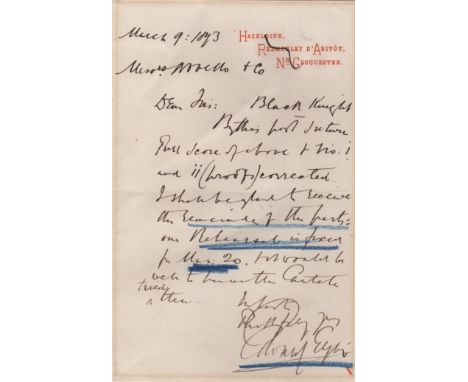 March 9: 1893
HAZELDINE,
REDMARLEY D'ABITÔT,
Nr GLOUCESTER.
Messrs Novello & Co
Dear Sirs: Black Knight
By this post I return
Full score of above & Vio: I
and ii (proofs) corrected.
I shall be glad to receive
the remainder of the parts =
our Rehearsal is fixed
for Mar: 20. & it would be
well to have the Cantata
tried
then.
Edward Elgar